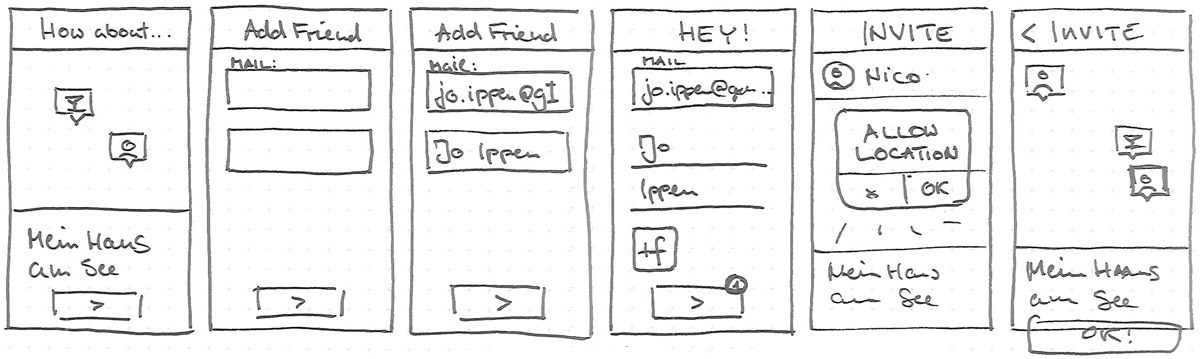 How about...
Mein Haus
am See
>
Add Friend
MAIL:
>
Add Friend
Mail:
jo.ippen@gI
Jo Ippen
>
HEY!
MAIL
jo.ippen@gm...
Jo
Ippen
+f
1
>
INVITE
Nico
ALLOW
LOCATION
x | OK
Mein Haus
am See
< INVITE
Mein Haaus
am See
OK!